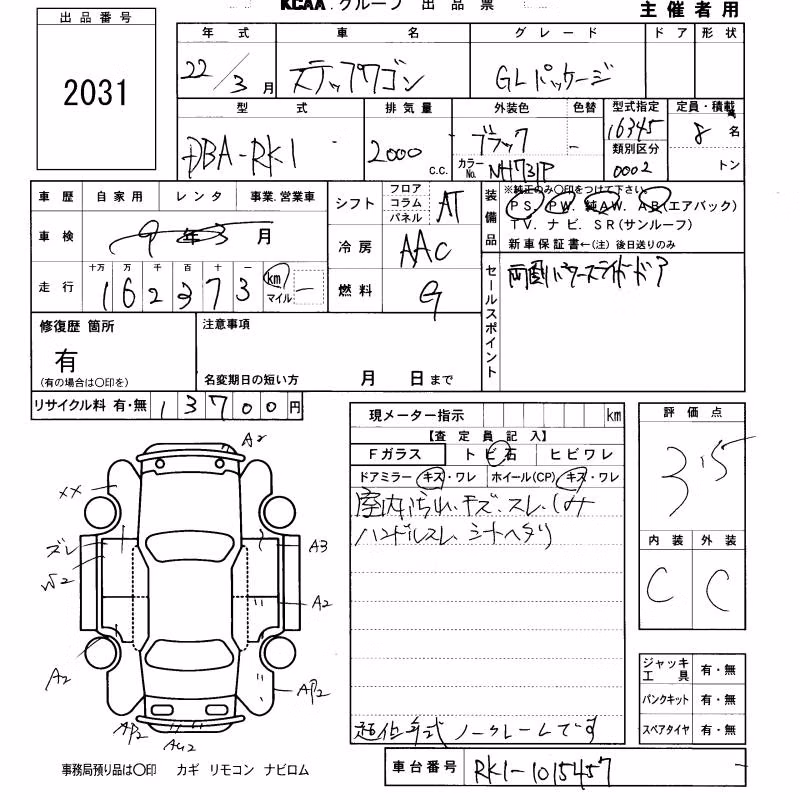 KCAA.グループ 出品票
主催者用
出品番号
2031
年式 車名 グレード ドア 形状
22/3月 ステップワゴン GLパッケージ
型式 排気量 外装色 色替 型式指定 定員・積載
DBA-RK1 2000 c.c. ブラック - 16345 8名
カラーNo. NH731P 類別区分 0002 トン
車歴 自家用 レンタ 事業.営業車
シフト フロア コラム パネル AT
装備品
※純正のみ〇印をつけて下さい。
PS. PW. 純AW. AB(エアバック)
TV. ナビ. SR(サンルーフ)
新車保証書←(注)後日送りのみ
車検 9年3月
冷房 AAC
走行 十万 万 千 百 十 一
162373 km マイル -
燃料 G
セールスポイント
両側パワースライドドア
修復歴 箇所
有
(有の場合は〇印を)
注意事項
名変期日の短い方 月 日まで
リサイクル料 有・無 13700円
現メーター指示 km
【査定員記入】
Fガラス トビ石 ヒビワレ
ドアミラー キズ・ワレ ホイール(CP) キズ・ワレ
室内汚れ.キズ.スレ.しみ
ハンドルスレ シートヘタリ
評価点
3.5
内装 外装
C C
A2
XX
ズレ
A3
W2
A2
A2
AP2
AP2
AU2
ジャッキ工具 有・無
パンクキット 有・無
スペアタイヤ 有・無
超低年式 ノークレームです
事務局預り品は〇印 カギ リモコン ナビロム
車台番号 RK1-1015457